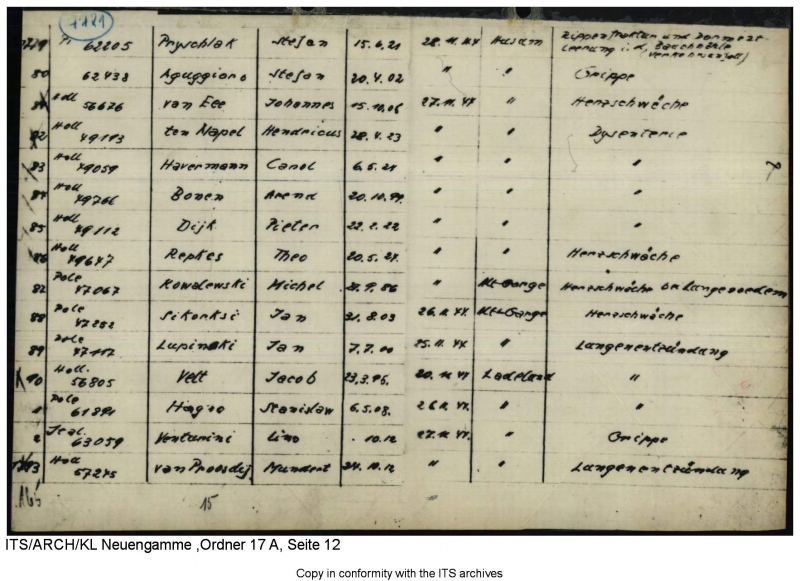 7781
Pryschlak Stefan 28.11.44 Husum
62205 15.6.21
80 62438 Aguggiaro Stefan 20.4.02 " " Grippe
56676 van Ece Johannes 15.10.06 27.11.44 " Herzschwäche
Holl
49113 ten Napel Hendricus 28.4.23 " " Dysenterie
Holl
83 49059 Havermann Carol 6.5.21 " " "
Holl
84 49766 Bonen Arend 20.10.99. " " "
Holl
85 49112 Dijk Pieter 22.2.22 " " "
Holl
86 49647 Repkes Theo 20.5.24. " " Herzschwäche
Pole
87 47067 Kowalewski Michel " Kl-Garge Herzschwäche
Pole
88 47252 Sikorksi Jan 31.8.03 26.11.44. Kl-Garge Herzschwäche
Pole
89 47117 Lupinski Jan 7.7.00 25.11.44 " Lungenentzündung
Holl.
90 56805 Velt Jacob 23.3.96. 20.11.44 Ladelund "
Pole
1 61891 Hagno Stanislaw 6.5.08. 26.11.44. " "
Ital.
2 63059 Venturini Lino . 10.12 27.11.44. " Grippe
Holl
57275 van Proosdij Mundert 24.10.12 " " Lungenentzündung
15
ITS/ARCH/KL Neuengamme ,Ordner 17 A, Seite 12
Copy in conformity with the ITS archives